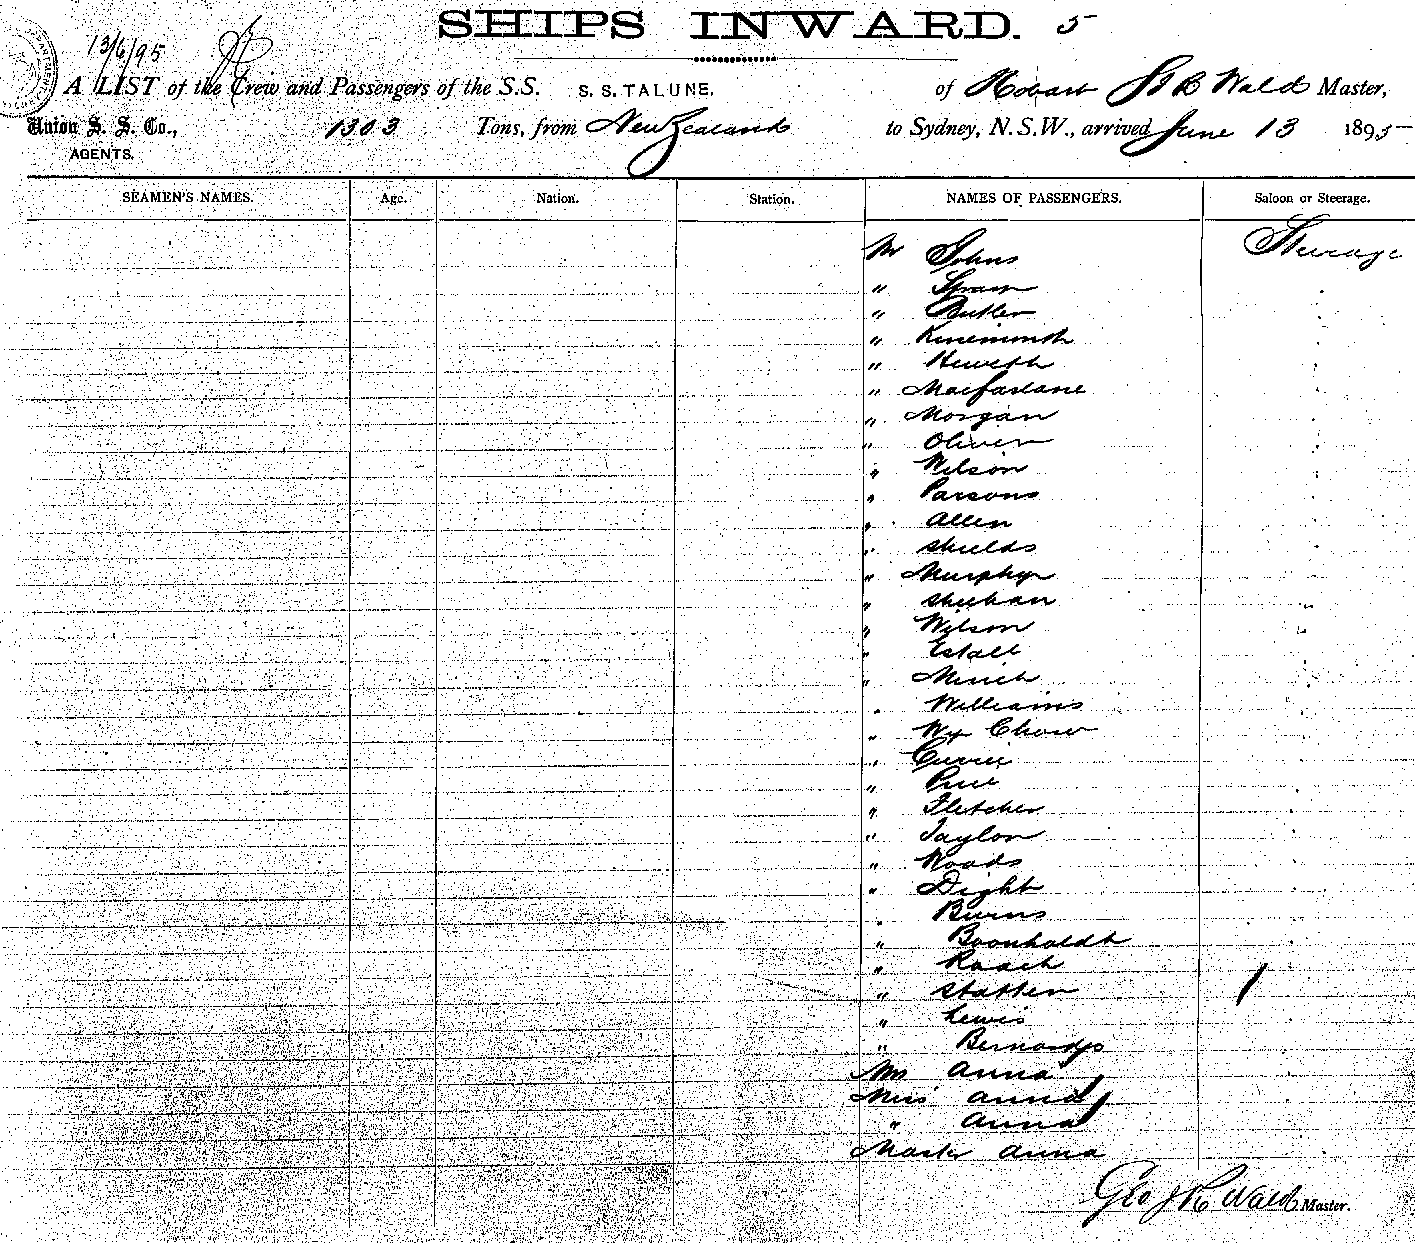 SHIPS INWARD. 5
13/6/95
A LIST of the Crew and Passengers of the S.S. S. S. TALUNE, of Hobart Wald Master,
Union S. S. Co., 1303 Tons, from New Zealand to Sydney, N.S.W., arrived June 13 1895
AGENTS.
SEAMEN'S NAMES. Age. Nation. Station. NAMES OF PASSENGERS. Saloon or Steerage.
Mr Johns Steerage
" 
" Butler
" 
" 
" Macfarlane
" Morgan
" Oliver
" Wilson
" Parsons
" Allen
" Shields
" Murphy
" Sheehan
" Wilson
" Estall
" 
" Williams
" Chow
" Currie
" Price
" Fletcher
" Taylor
" Woods
" Dight
" Burns
" Boonholdt
" Roach
" Statten
" Lewis
" 
Mrs Anna
Miss Anna
" Anna
Master Anna
Geo Wald Master.